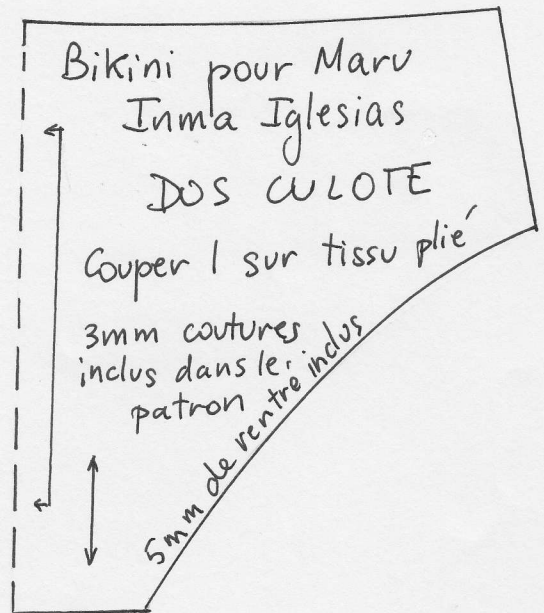 Bikini pour Maru
Inma Iglesias
DOS CULOTE
Couper 1 sur tissu plié
3mm coutures
inclus dans le
patron
5mm de rentre inclus